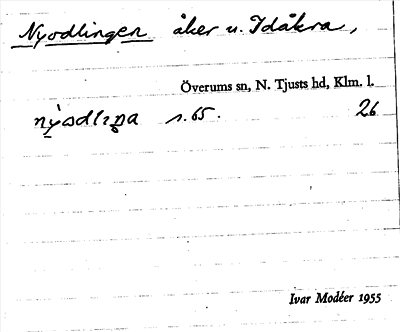 Nyodlingen åker u. Idåkra,
Överums sn, N. Tjusts hd, Klm. l.
nỳωdlıŋa s. 65. 26
Ivar Modéer 1955